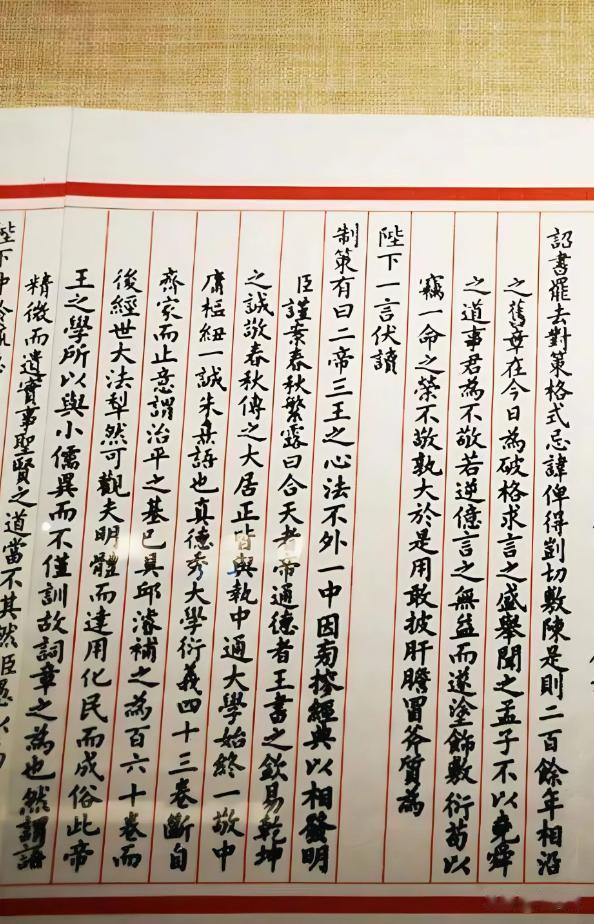 詔書罷去對策格式忌諱俾得剴切敷陳是則二百餘年相沿
之舊章在今日為破格求言之盛舉聞之孟子不以堯舜
之道事君為不敬若逆億言之無益而遂塗飾敷衍苟以
竊一命之榮不敬孰大於是用敢披肝膽冒斧質為
陛下一言伏讀
制策有曰二帝三王之心法不外一中因旁搽經典以相發明
臣謹案春秋繁露曰合天者帝通德者王書之欽易乾坤
之誠敬春秋傳之大居正皆與執中通大學始終一敬中
庸樞紐一誠朱熹語也真德秀大學衍義四十三卷斷自
齊家而止意謂治平之基已具邱濬補之為百六十卷而
後經世大法犁然可觀夫明體而達用化民而成俗此帝
王之學所以與小儒異而不僅訓故詞章之為也然謂語
精微而遺實事聖賢之道當不其然臣愚以為
陛下